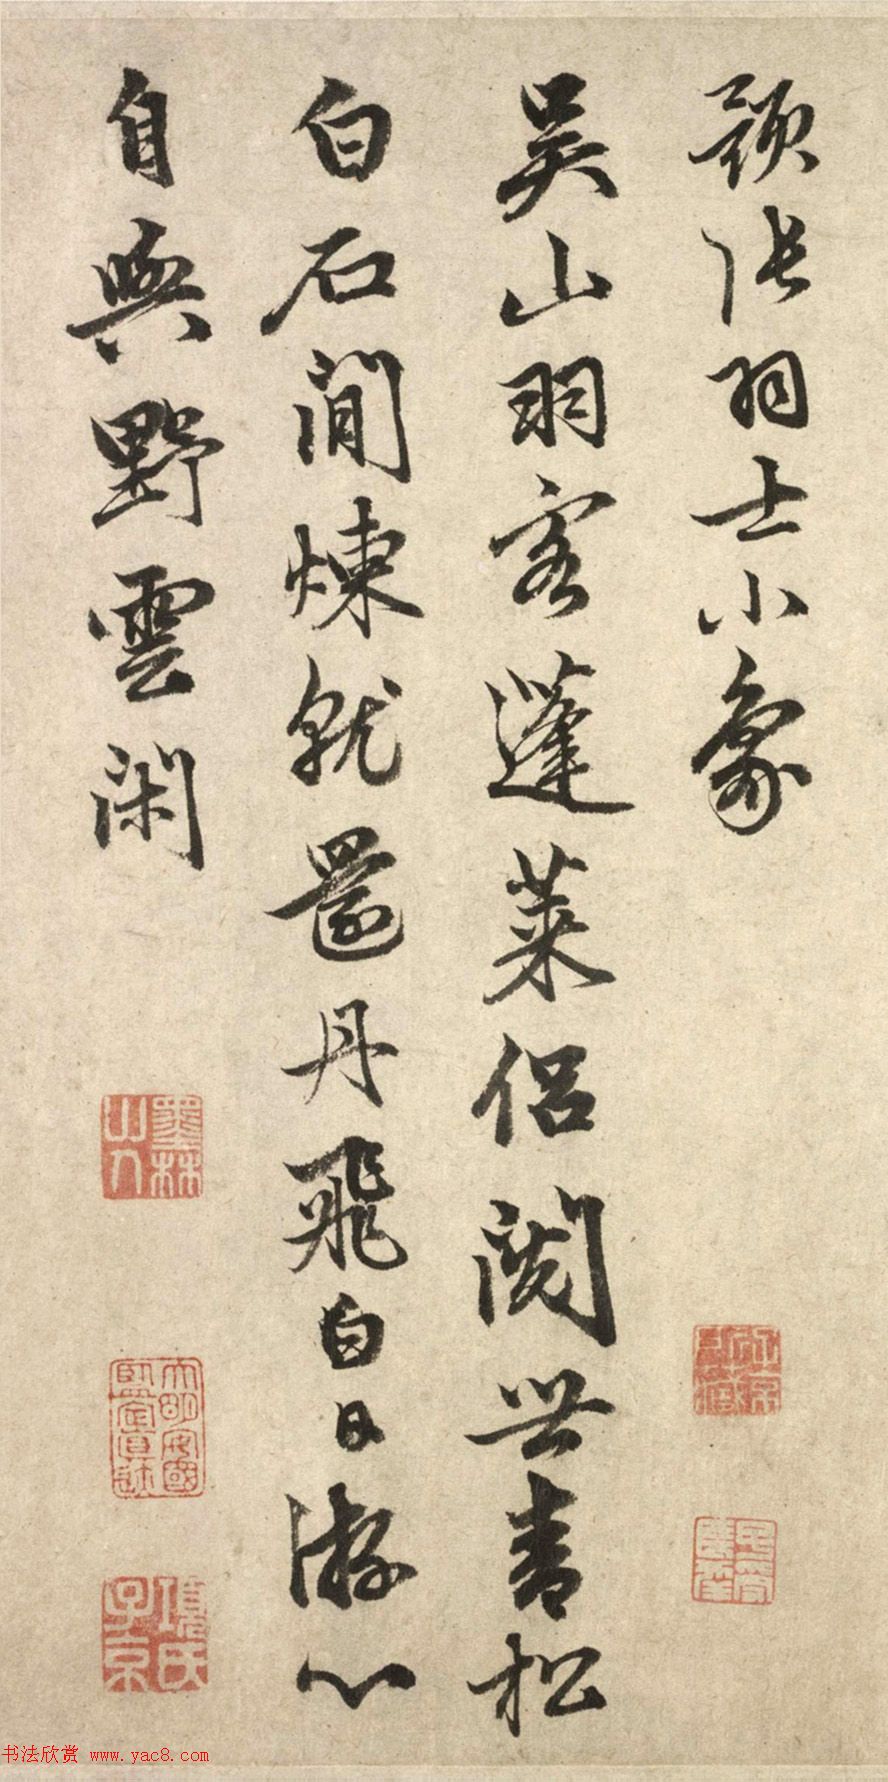 題張羽士小象
吳山羽客蓬萊侶閱世青松
白石間煉就還丹飛白日游心
自與野雲閑
墨林山人
項氏子京
书法欣赏 www.yac8.com